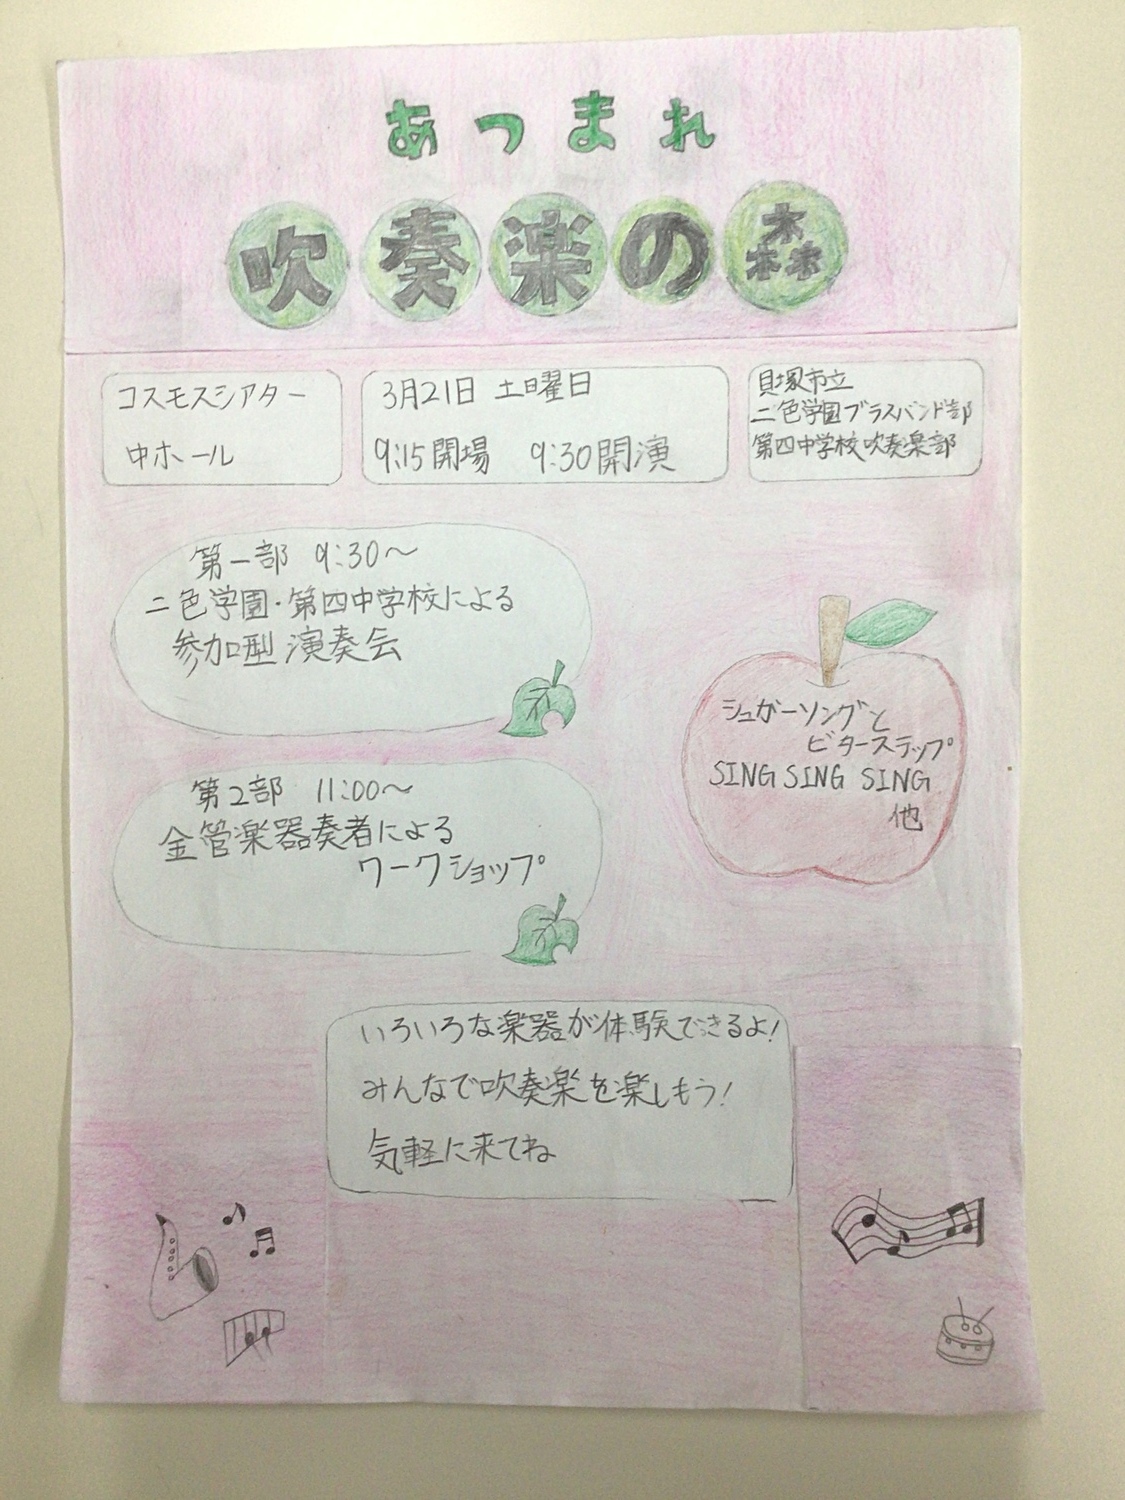 あつまれ
吹奏楽の森
コスモスシアター
中ホール
3月21日 土曜日
9:15開場 9:30開演
貝塚市立
二色学園ブラスバンド部
第四中学校吹奏楽部
第一部 9:30〜
二色学園・第四中学校による
参加型演奏会
第2部 11:00〜
金管楽器奏者による
ワークショップ
シュガーソングと
ビターステップ
SING SING SING
他
いろいろな楽器が体験できるよ!
みんなで吹奏楽を楽しもう!
気軽に来てね